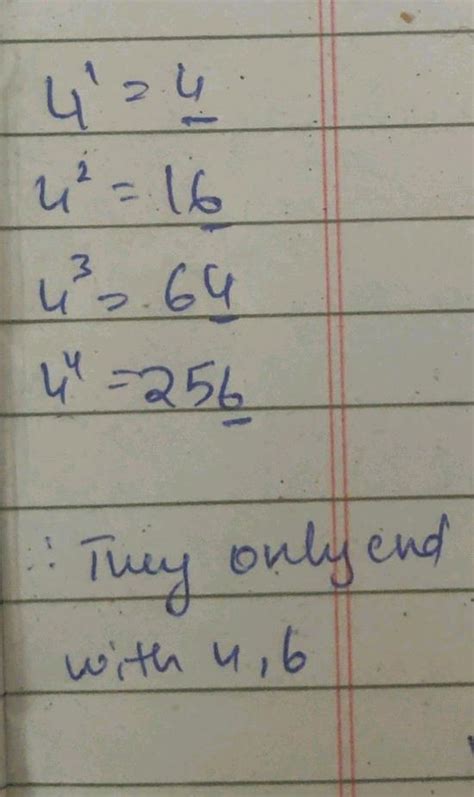 4¹ = 4
4² = 16
4³ = 64
4⁴ = 256
∴ They only end
with 4, 6